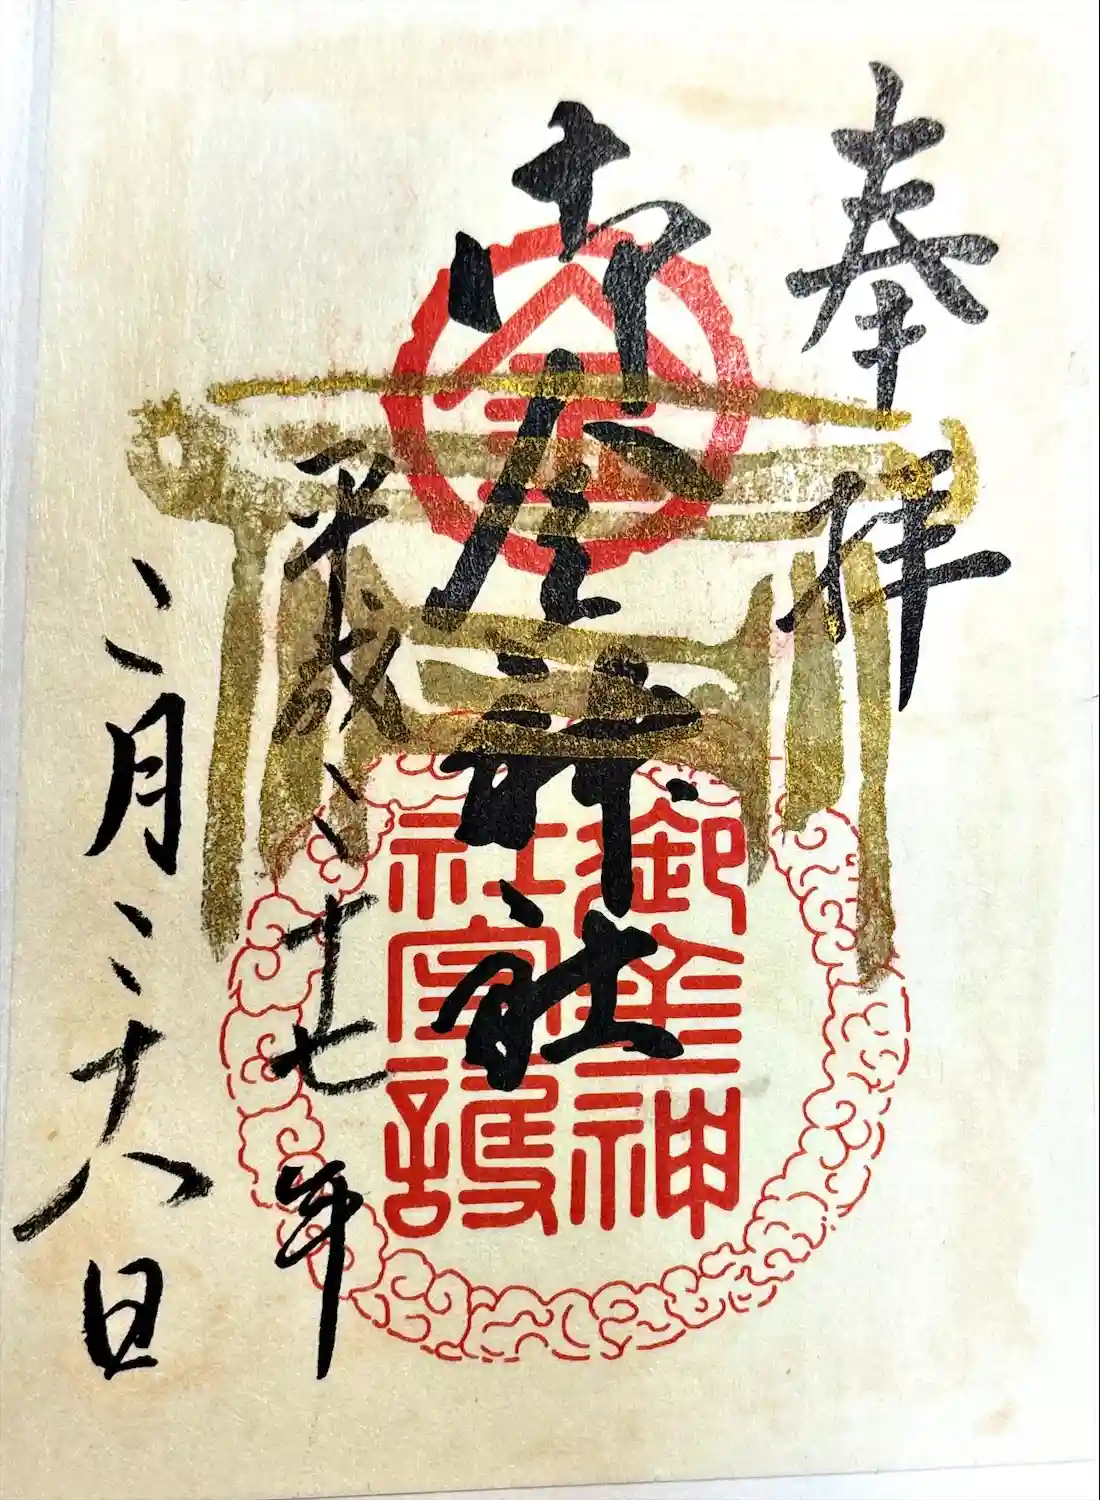 奉拝
御金神社
金
御金神
社守護
平成二十七年
二月二十八日